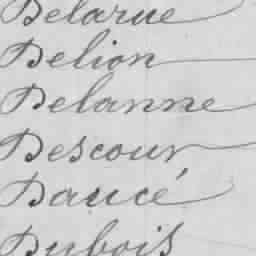 Delarue
Delion
Delanne
Descour
Daucé
Dubois